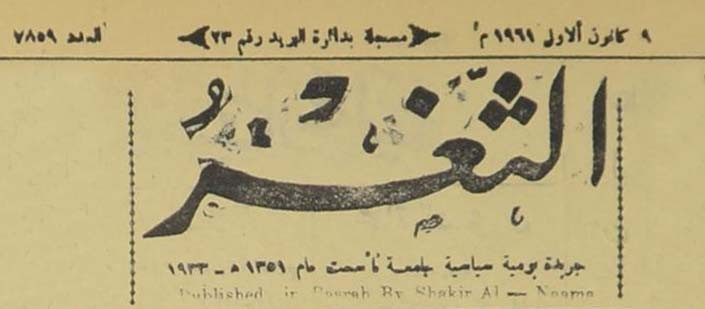 ٩ كانون الاول ١٩٦١ م (مسجلة بدائرة البريد رقم ٢٣) العدد ٧٨٥٩
الثغر
جريدة يومية سياسية جامعة تأسست عام ١٣٥١ هـ - ١٩٣٣
Published in Basrah By Shakir Al - Naama